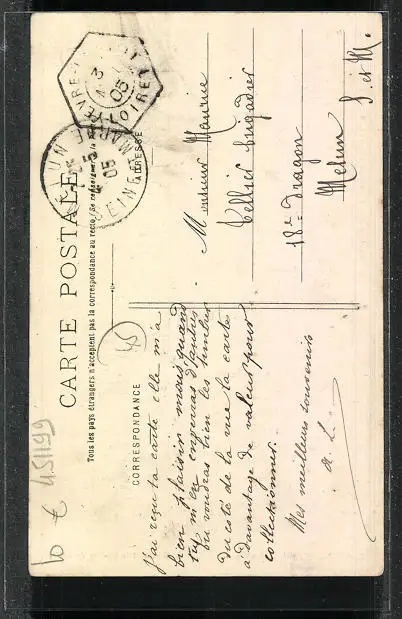 CARTE POSTALE
Tous les pays étrangers n'acceptent pas la correspondance au recto (Se renseigner à la
CORRESPONDANCE
ADRESSE
J'ai reçu ta carte elle m'a
bien plaisir mais quand
tu m'en enverras d'autres
tu voudras bien les timbrer
du coté de la vue la carte
à davantage de valeur pour
collectionner.
Mes meilleurs souvenirs
Monsieur Maurice
Tellier brigadier
18e dragon
Melun S. et M.
LOIRET
05
MELUN
SEINE ET MARNE
05
45
10 € 451199